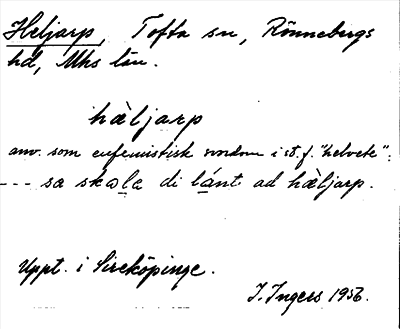 Heljarp, Tofta sn, Rönnebergs
hd, Mhs län.
hæ̀ljarp
anv. som eufemistisk svordom i st. f. "helvete":
--- sa skɷla di lánt ad hæ̀ljarp.
Uppt. i Sireköpinge.
I. Ingers 1956.